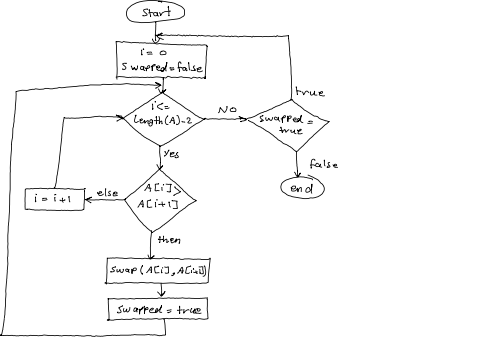 start
i = 0
swapped=false
i<=
length(A)-2
NO
true
swapped =
true
false
end
yes
A[i]>
A[i+1]
else
i = i+1
then
swap (A[i], A[i+1])
swapped = true